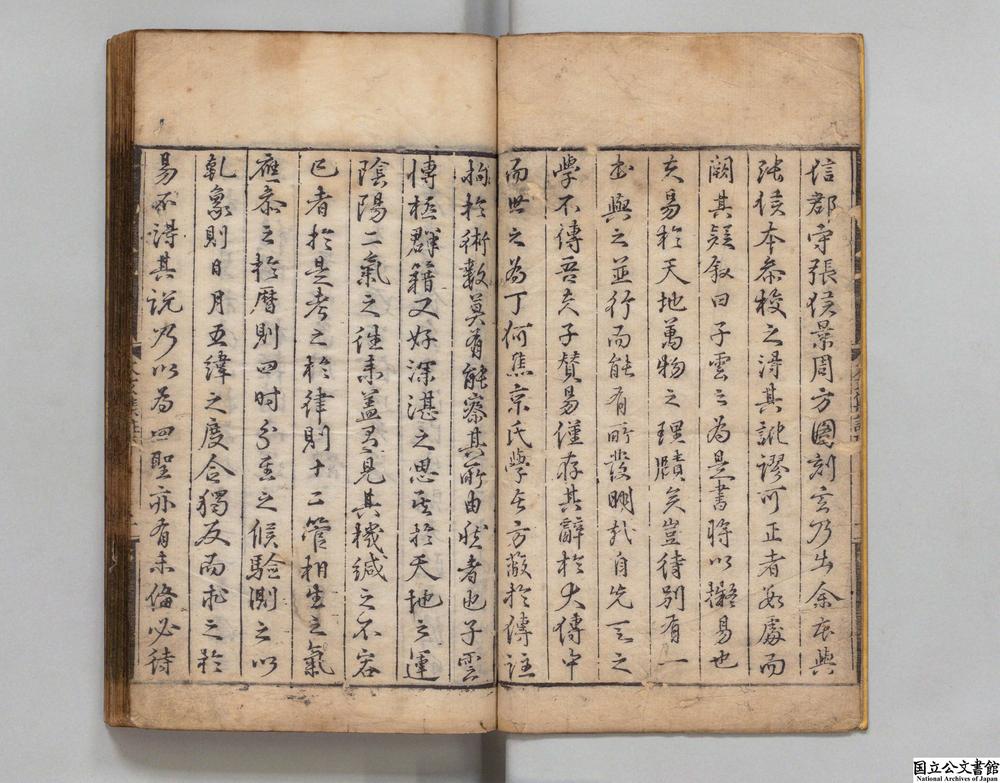 信郡守張侯景周方圖刻玄乃出余家與
張侯本叅校之得其訛謬可正者數處而
闕其疑叙曰子雲之為是書將以擬易也
夫易於天地萬物之理賾矣豈待別有一
書與之並行而能有所發明哉自先天之
學不傳吾夫子贊易僅存其辭於大傳中
而世之為丁何焦京氏學者方蔽於傳註
拘於術數莫有能察其所由然者也子雲
博極群籍又好深湛之思其於天地之運
陰陽二氣之往來蓋有見其機緘之不容
已者於是考之於律則十二管相生之氣
應叅之於曆則四時分至之候驗測之以
乾象則日月五緯之度合獨反而求之於
易不得其說乃以為四聖亦有未備必待
国立公文書館
National Archives of Japan